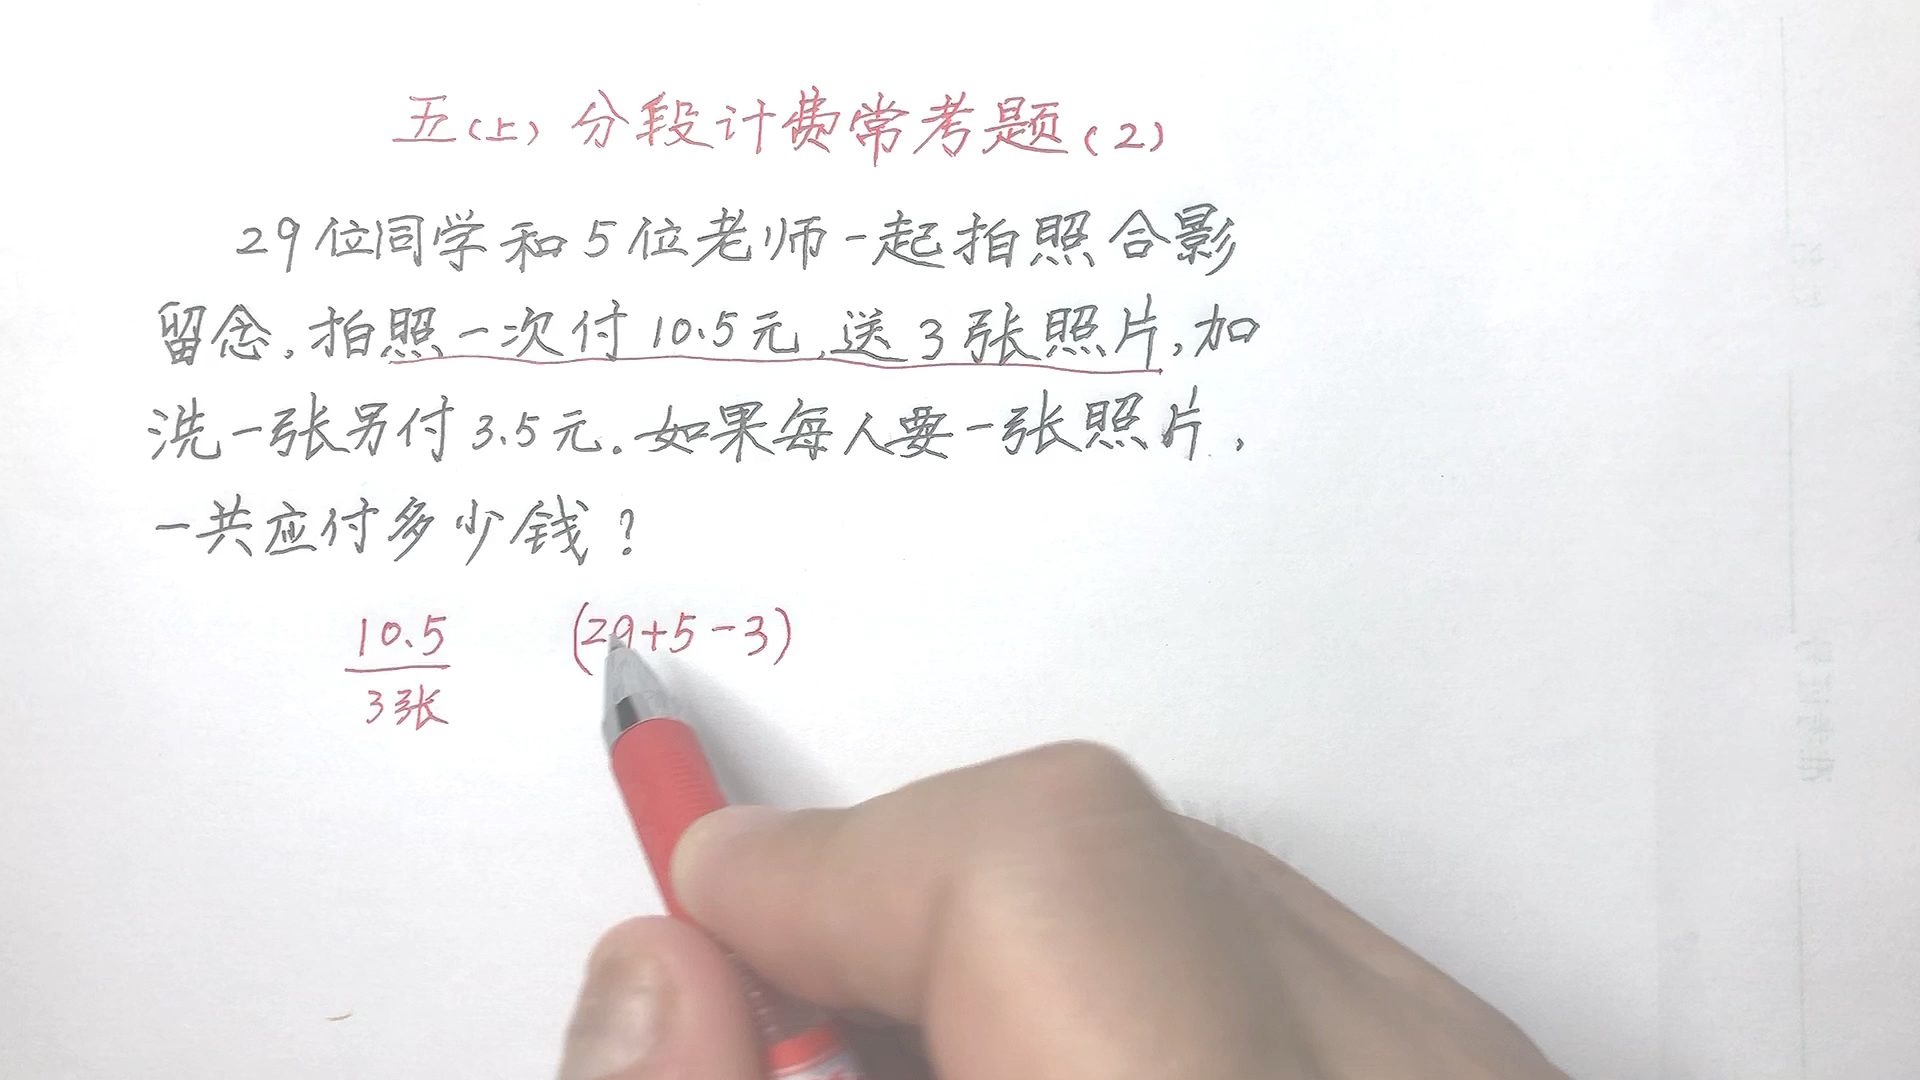 五(上)分段计费常考题(2)
29位同学和5位老师一起拍照合影
留念,拍照一次付10.5元,送3张照片,加
洗一张另付3.5元。如果每人要一张照片,
一共应付多少钱?
10.5 (29+5-3)
3张